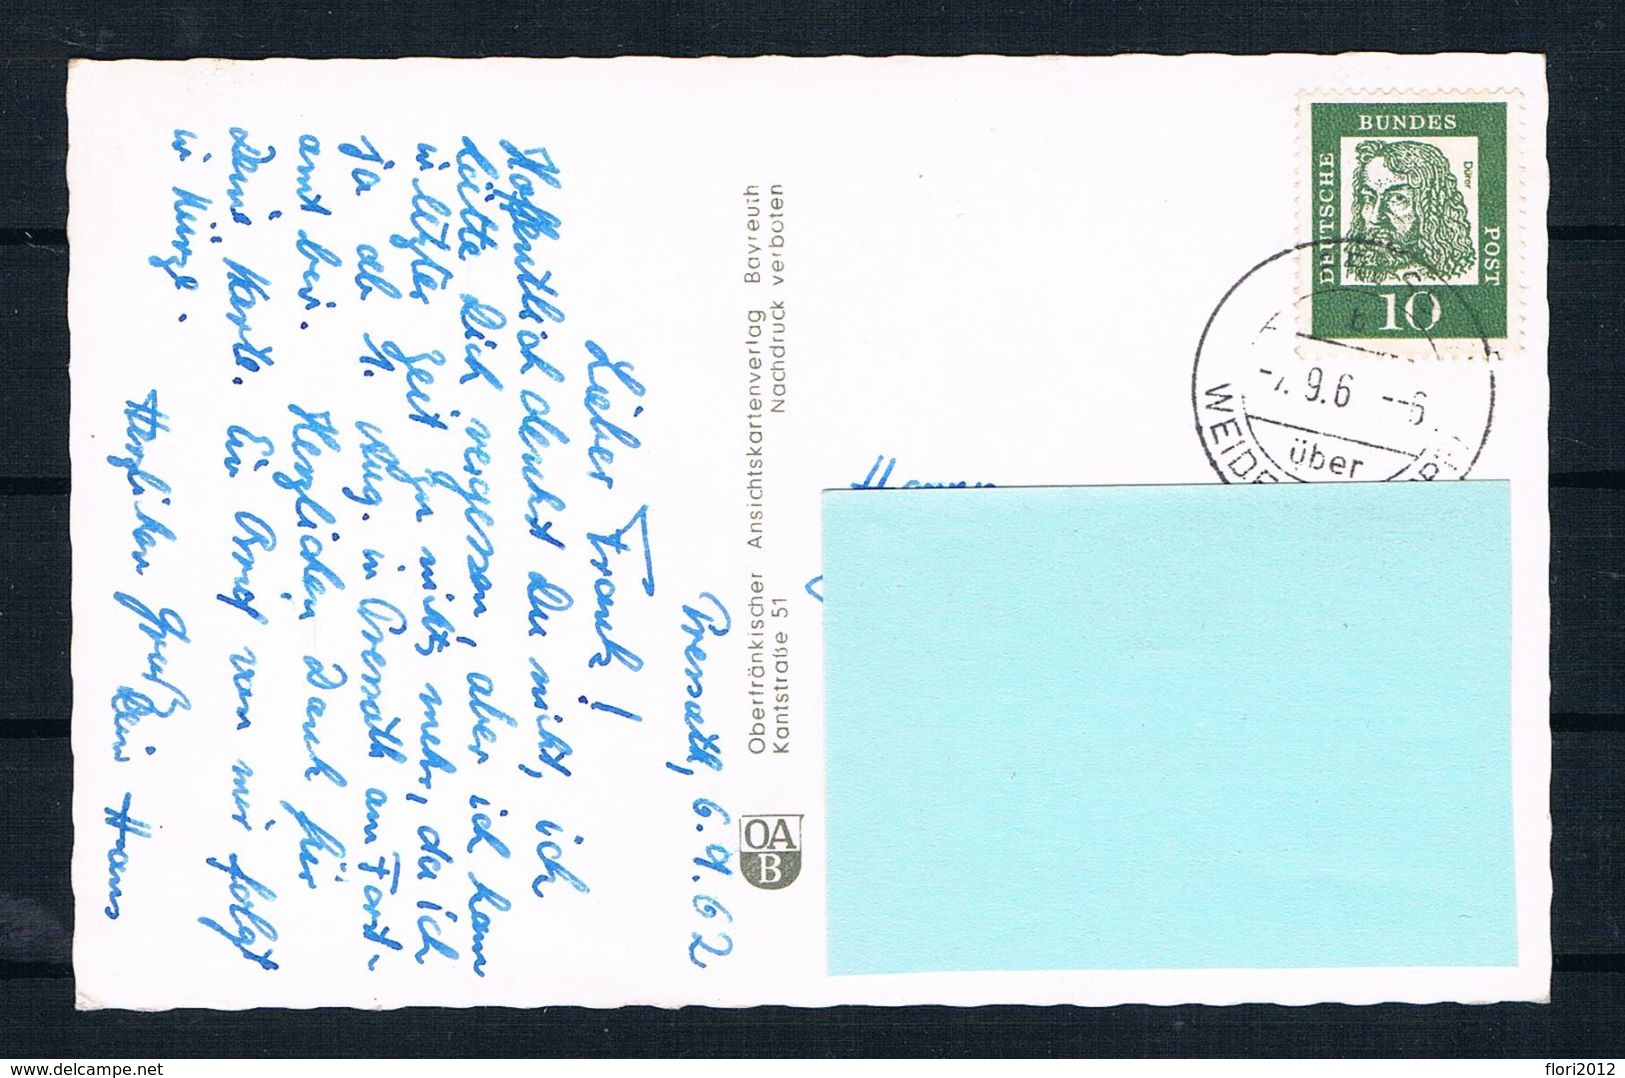 Pressath, 6.9.62
Lieber Frank!
Hoffentlich denkst Du nicht, ich
hätte Dich vergessen, aber ich kam
in letzter Zeit zu nichts mehr, da ich
ja ab 1. Aug. in Pressath am Forst-
amt bin. Herzlichen Dank für
Deine Karte. Ein Brief von mir folgt
in Kürze.
Herzlichen Gruß Dein Hans
Oberfränkischer Ansichtskartenverlag Bayreuth
Kantstraße 51 Nachdruck verboten
OA
B
Herrn
DEUTSCHE
BUNDES
POST
Dürer
10
-7. 9.6 --6
über
WEIDE
delcampe.net
flori2012